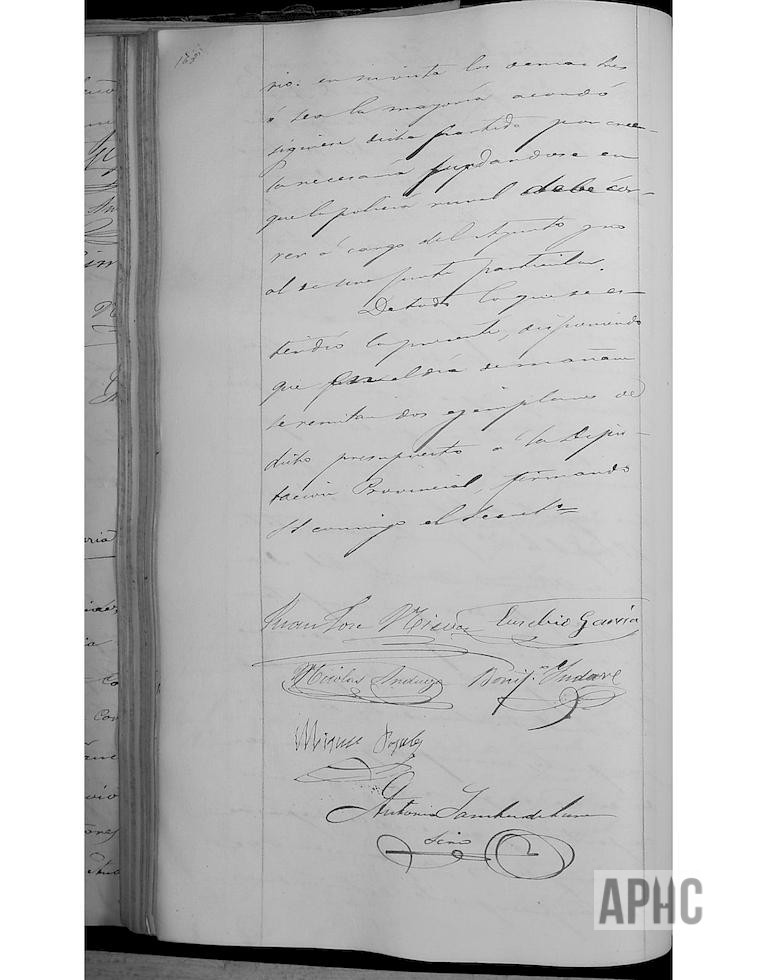 rio. en su vista los demas tres
ó sea la mayoría acordó
siguiese dicha partida por cre-
la necesaria fundandose en
que la policia rural debe cor-
rer á cargo del Ayunto y no
al de una junta particular.
De todo lo que se es-
tendió la presente, disponiendo
que en el dia de mañana
se remitan dos ejemplares de
dicho presupuesto a la Dipu-
tación Provincial, firmando
SS conmigo el Secreto
Juan Jose Eusebio Garcia
Nicolas Andueza Bonifo
Miguel
Antonio
Srio
APHC